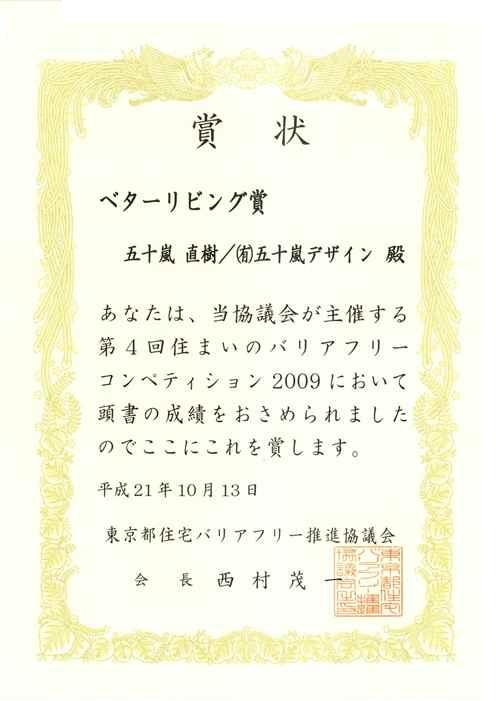 賞 状
ベターリビング賞
五十嵐 直樹／㈲五十嵐デザイン 殿
あなたは、当協議会が主催する
第4回住まいのバリアフリー
コンペティション2009において
頭書の成績をおさめられました
のでここにこれを賞します。
平成21年10月13日
東京都住宅バリアフリー推進協議会
会 長 西 村 茂 一